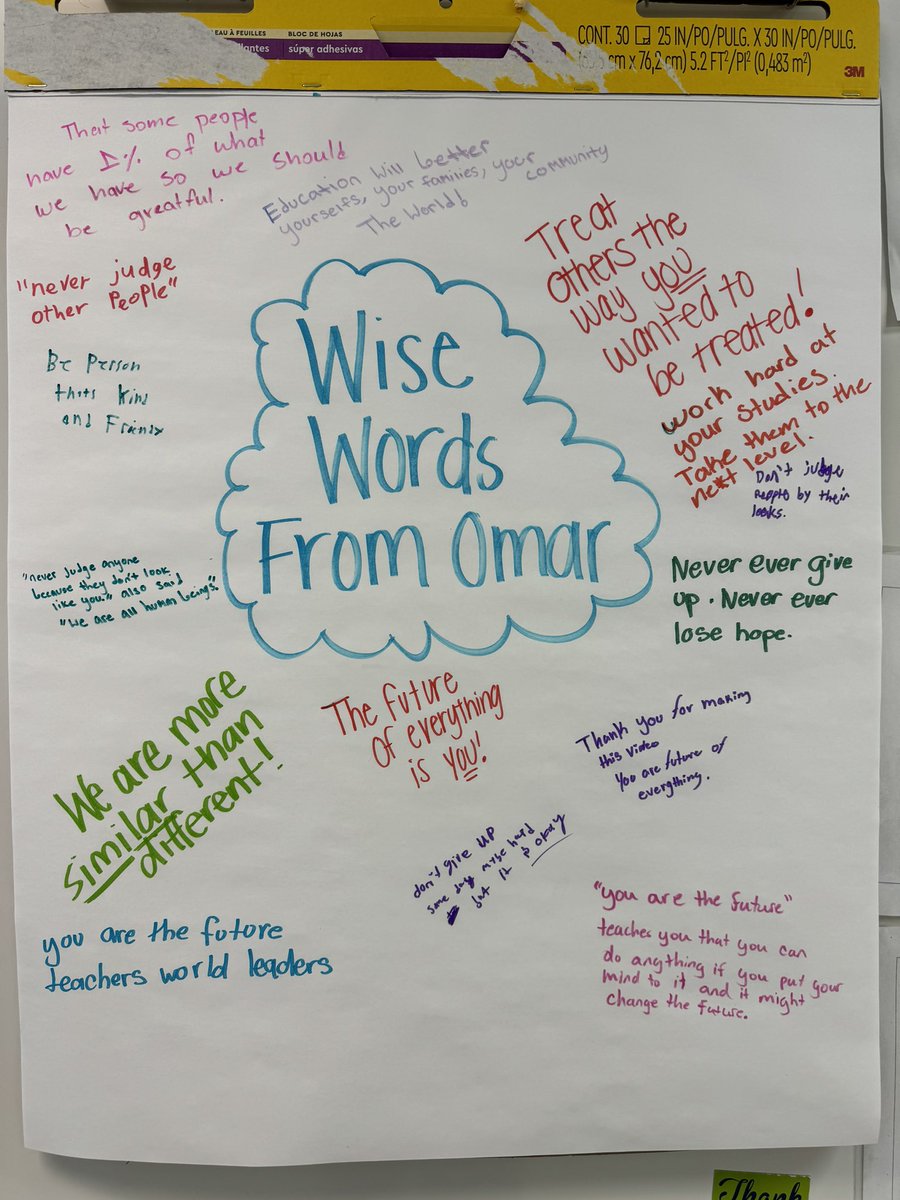 EAU À FEUILLES
BLOC DE HOJAS
súper adhesivas
CONT. 30 25 IN/PO/PULG. X 30 IN/PO/PULG.
cm x 76,2 cm) 5.2 FT²/PI² (0,483 m²)
3M
That some people
have 1% of what
we have so we should
be greatful.
Education Will better
yourselfs, your families, your community
The World!
Treat
others the
way you
wanted to
be treated!
"never judge
other People"
Be Person
thats kind
and
work hard at
your studies.
Take them to the
next level.
Don't judge
people by their
looks.
Wise
Words
From Omar
"never judge anyone
because they don't look
like you." also said
"We are all human beings".
Never ever give
up. Never ever
lose hope.
We are more
similar than
different!
The future
of everything
is you!
Thank you for making
this video
You are future of
everything.
don't give up
some day maybe hard
but it is okay
you are the future
teachers world leaders
"you are the future"
teaches you that you can
do anything if you put your
mind to it and it might
change the future.
Thank